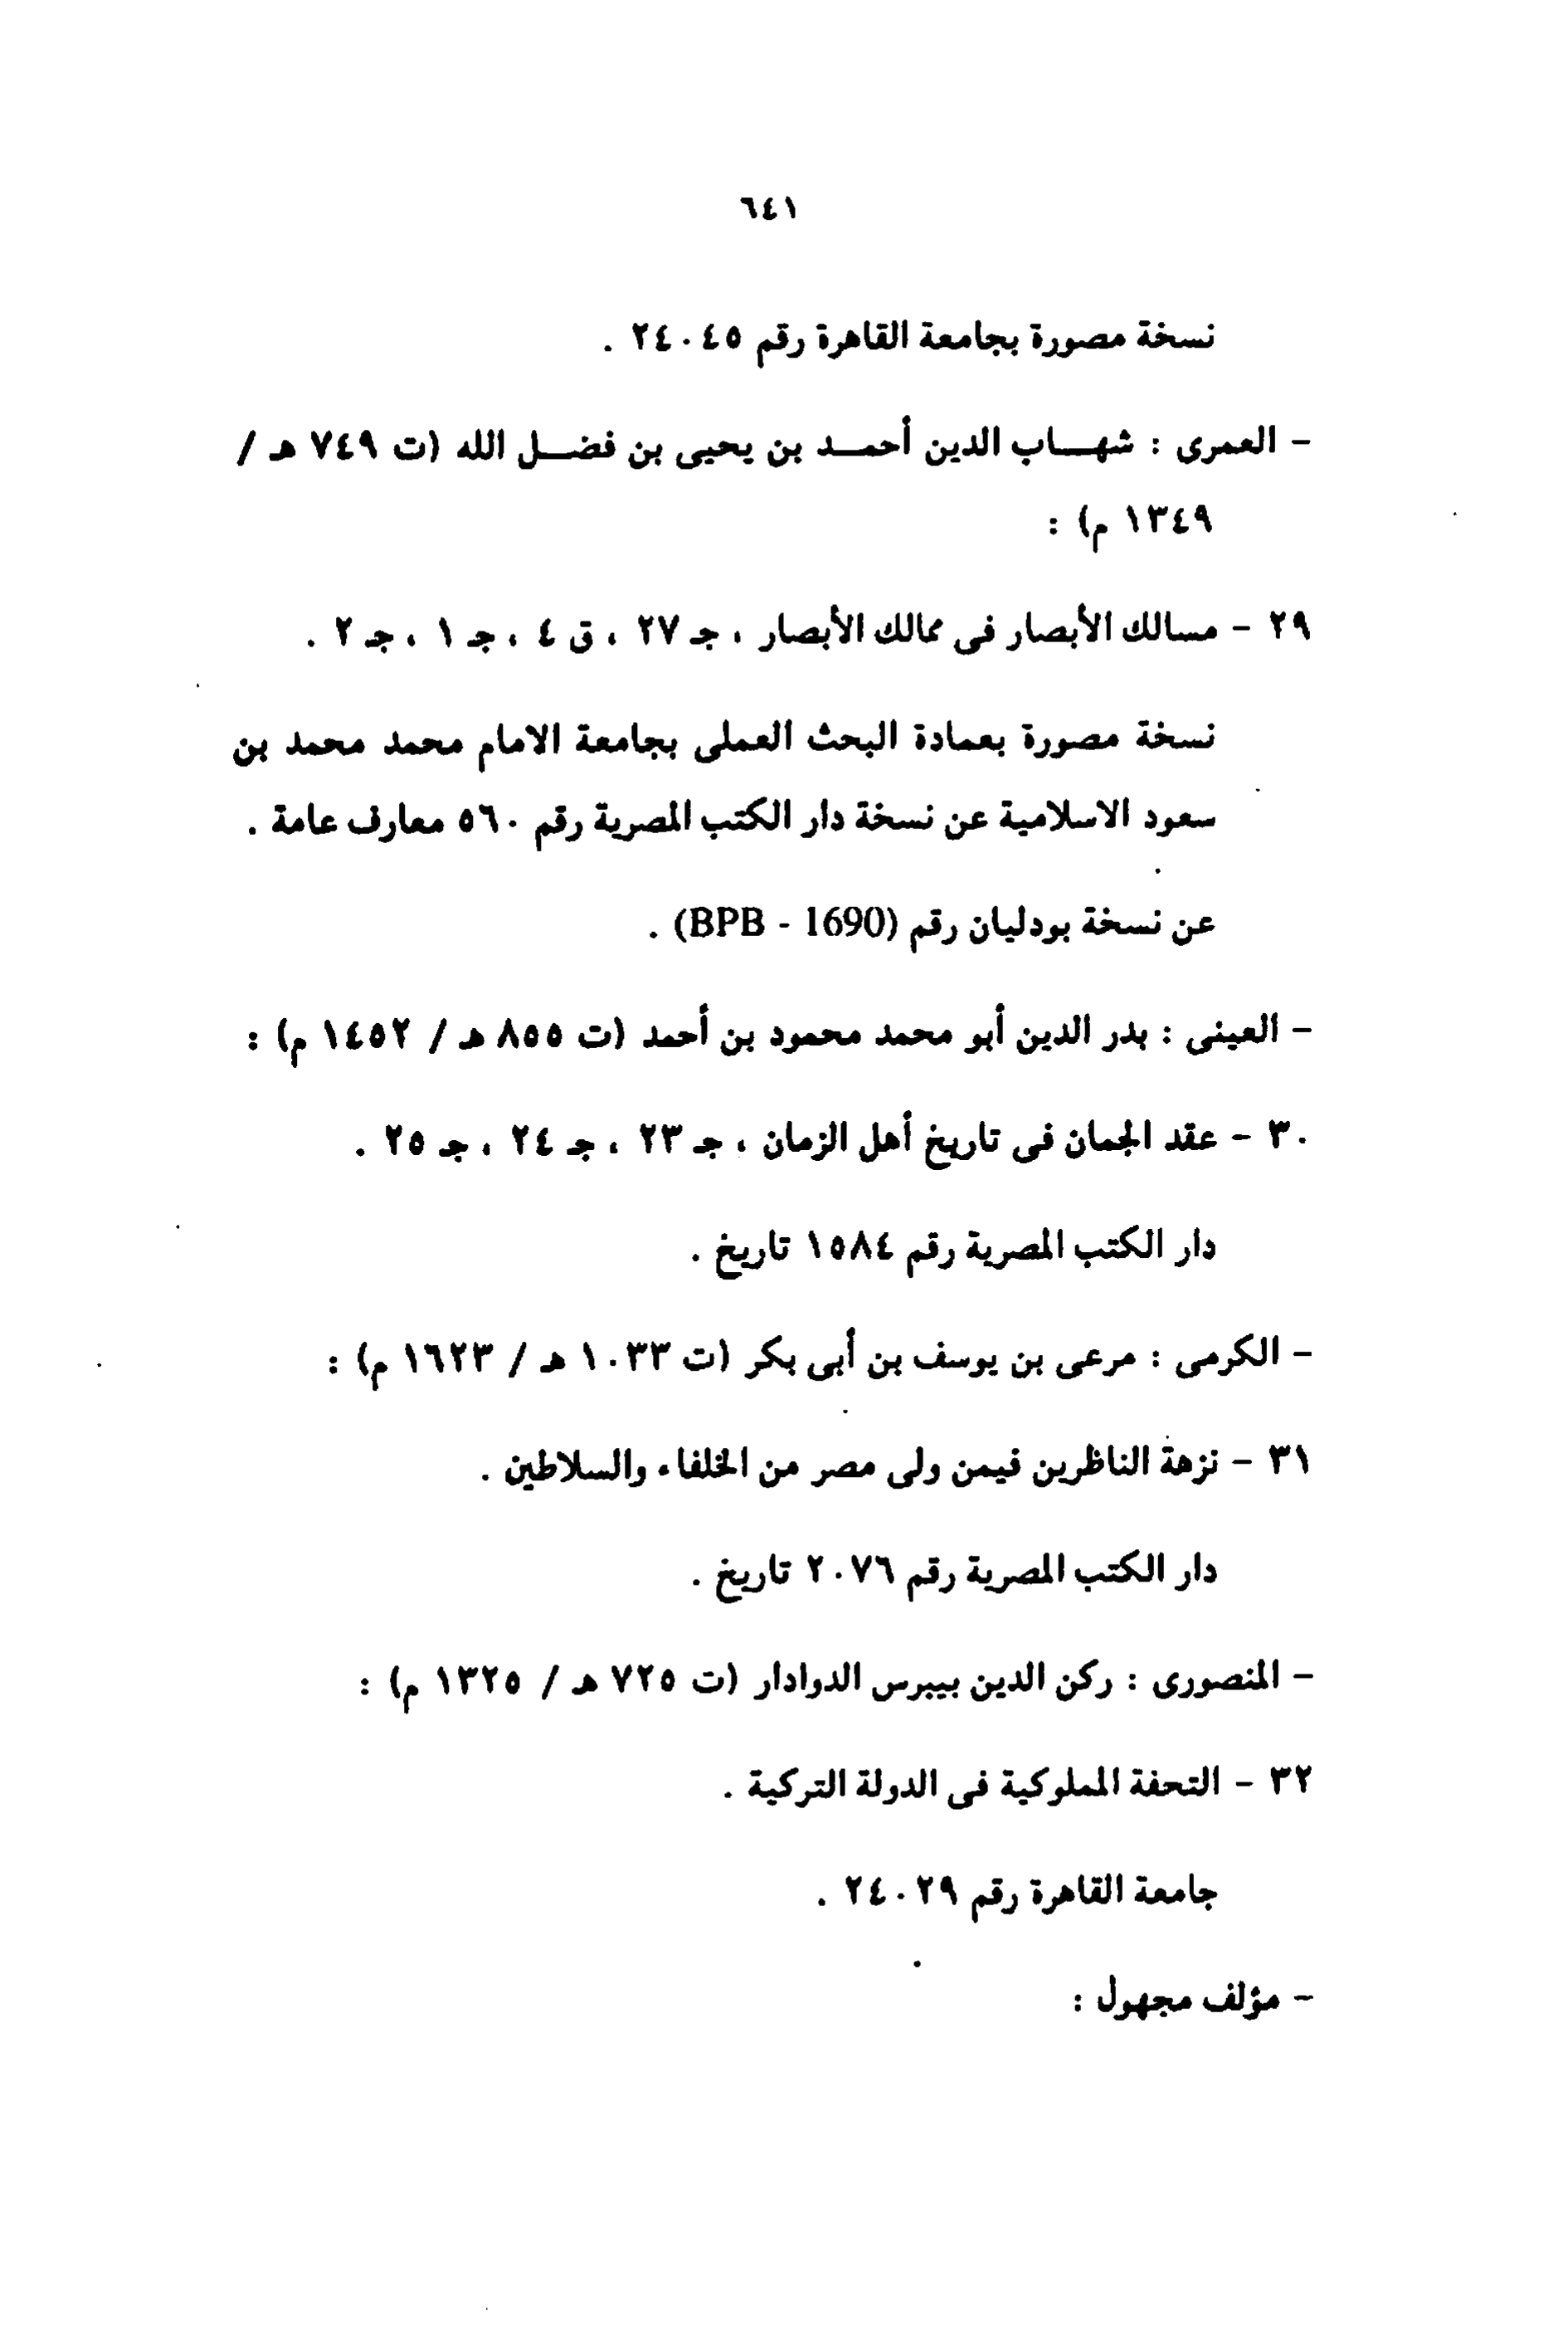 ٦٤١
نسخة مصورة بجامعة القاهرة رقم ٢٤٠٤٥ .
- العمرى : شهـــاب الدين أحمــد بن يحيى بن فضــل الله (ت ٧٤٩ هـ /
١٣٤٩ م) :
٢٩ - مسالك الأبصار فى ممالك الأبصار ، جـ ٢٧ ، ق ٤ ، جـ ١ ، جـ ٢ .
نسخة مصورة بعمادة البحث العملى بجامعة الامام محمد محمد بن
سعود الاسلامية عن نسخة دار الكتب المصرية رقم ٥٦٠ معارف عامة .
عن نسخة بودليان رقم (BPB - 1690) .
- العينى : بدر الدين أبو محمد محمود بن أحمد (ت ٨٥٥ هـ / ١٤٥٢ م) :
٣٠ - عقد الجمان فى تاريخ أهل الزمان ، جـ ٢٣ ، جـ ٢٤ ، جـ ٢٥ .
دار الكتب المصرية رقم ١٥٨٤ تاريخ .
- الكرمى : مرعى بن يوسف بن أبى بكر (ت ١٠٣٣ هـ / ١٦٢٣ م) :
٣١ - نزهة الناظرين فيمن ولى مصر من الخلفاء والسلاطين .
دار الكتب المصرية رقم ٢٠٧٦ تاريخ .
- المنصورى : ركن الدين بيبرس الدوادار (ت ٧٢٥ هـ / ١٣٢٥ م) :
٣٢ - التحفة المملوكية فى الدولة التركية .
جامعة القاهرة رقم ٢٤٠٢٩ .
- مؤلف مجهول :